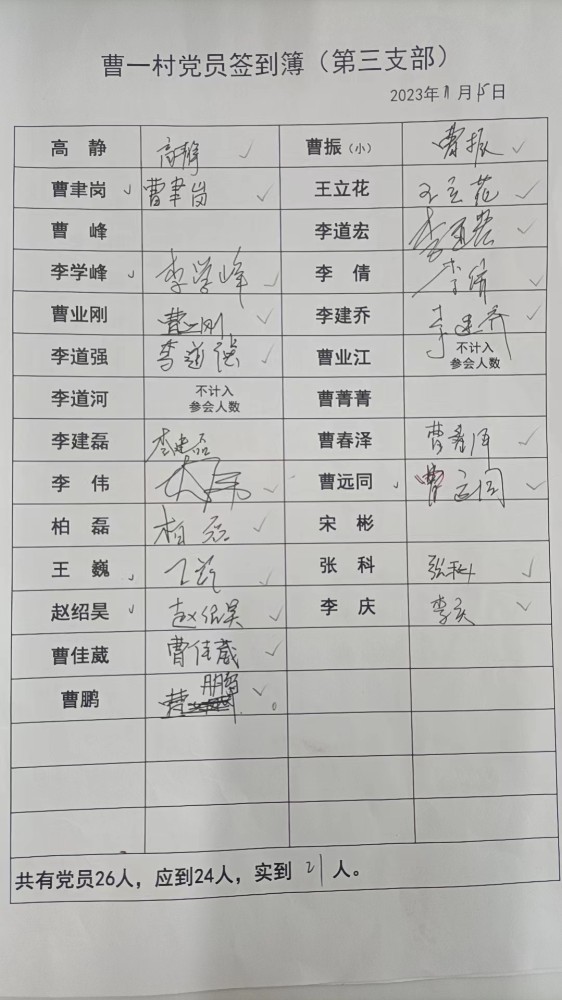 曹一村党员签到簿（第三支部）
2023年11月15日
高 静 高静 曹振（小） 曹振
曹聿岗 曹聿岗 王立花 王立花
曹 峰 李道宏 李道宏
李学峰 李学峰 李 倩 李倩
曹业刚 曹业刚 李建乔 李建乔
李道强 李道强 曹业江 不计入
参会人数
李道河 不计入
参会人数 曹菁菁
李建磊 李建磊 曹春泽 曹春泽
李 伟 李伟 曹远同 曹远同
柏 磊 柏磊 宋 彬
王 巍 张 科 张科
赵绍昊 赵绍昊 李 庆 李庆
曹佳葳 曹佳葳
曹鹏 曹鹏
共有党员26人，应到24人，实到21人。